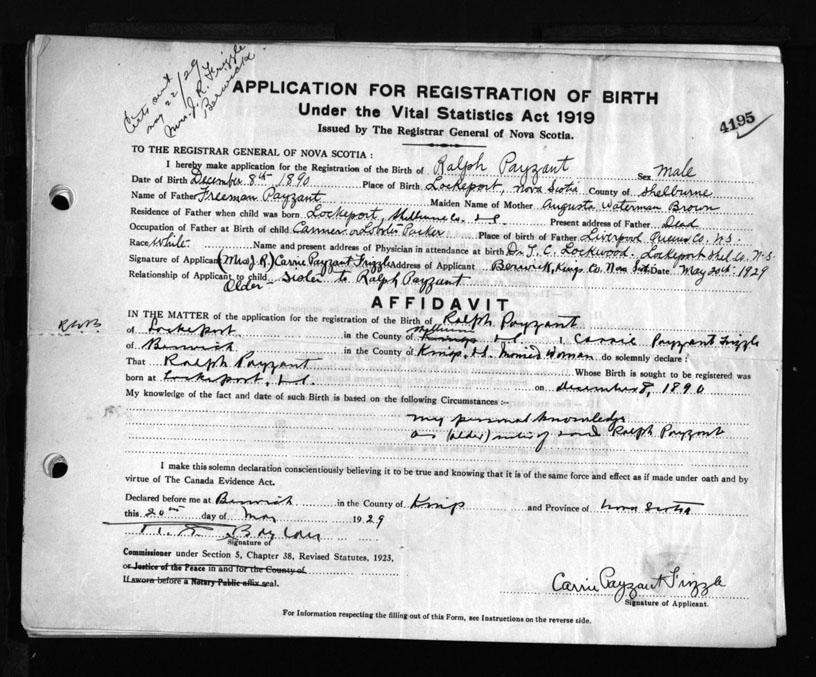 Certs. sent
May 22/29
Mrs. J. R. Frizzle
Berwick
APPLICATION FOR REGISTRATION OF BIRTH
Under the Vital Statistics Act 1919
Issued by The Registrar General of Nova Scotia.
4195
TO THE REGISTRAR GENERAL OF NOVA SCOTIA :
I hereby make application for the Registration of the Birth of Ralph Payzant Sex male
Date of Birth December 8th 1890 Place of Birth Lockeport, Nova Scotia County of Shelburne
Name of Father Freeman Payzant Maiden Name of Mother Augusta Waterman Brown
Residence of Father when child was born Lockeport, Shelburne Co. N.S. Present address of Father Dead
Occupation of Father at Birth of child Canner or Lobster Packer Place of birth of Father Liverpool Queens Co. N.S.
Race White Name and present address of Physician in attendance at birth Dr. T. C. Lockwood. Lockeport Shel. Co. N.S.
Signature of Applicant (Mrs J. R.) Carrie Payzant Frizzle Address of Applicant Berwick, Kings Co. Nova Scotia Date May 20th 1929
Relationship of Applicant to child Older Sister to Ralph Payzant
AFFIDAVIT
IN THE MATTER of the application for the registration of the Birth of Ralph Payzant
of Lockeport in the County of Shelburne N.S. I, Carrie Payzant Frizzle
of Berwick in the County of Kings, N.S. Married Woman do solemnly declare :
That Ralph Payzant Whose Birth is sought to be registered was
born at Lockeport, N.S. on December 8, 1890
My knowledge of the fact and date of such Birth is based on the following Circumstances :-
my personal knowledge
as (older) sister of said Ralph Payzant
I make this solemn declaration conscientiously believing it to be true and knowing that it is of the same force and effect as if made under oath and by
virtue of The Canada Evidence Act.
Declared before me at Berwick in the County of Kings and Province of Nova Scotia
this 20th day of May 1929
Signature of
Commissioner under Section 5, Chapter 38, Revised Statutes, 1923,
or Justice of the Peace in and for the County of
If sworn before a Notary Public affix seal.
Carrie Payzant Frizzle
Signature of Applicant.
For Information respecting the filling out of this Form, see Instructions on the reverse side.